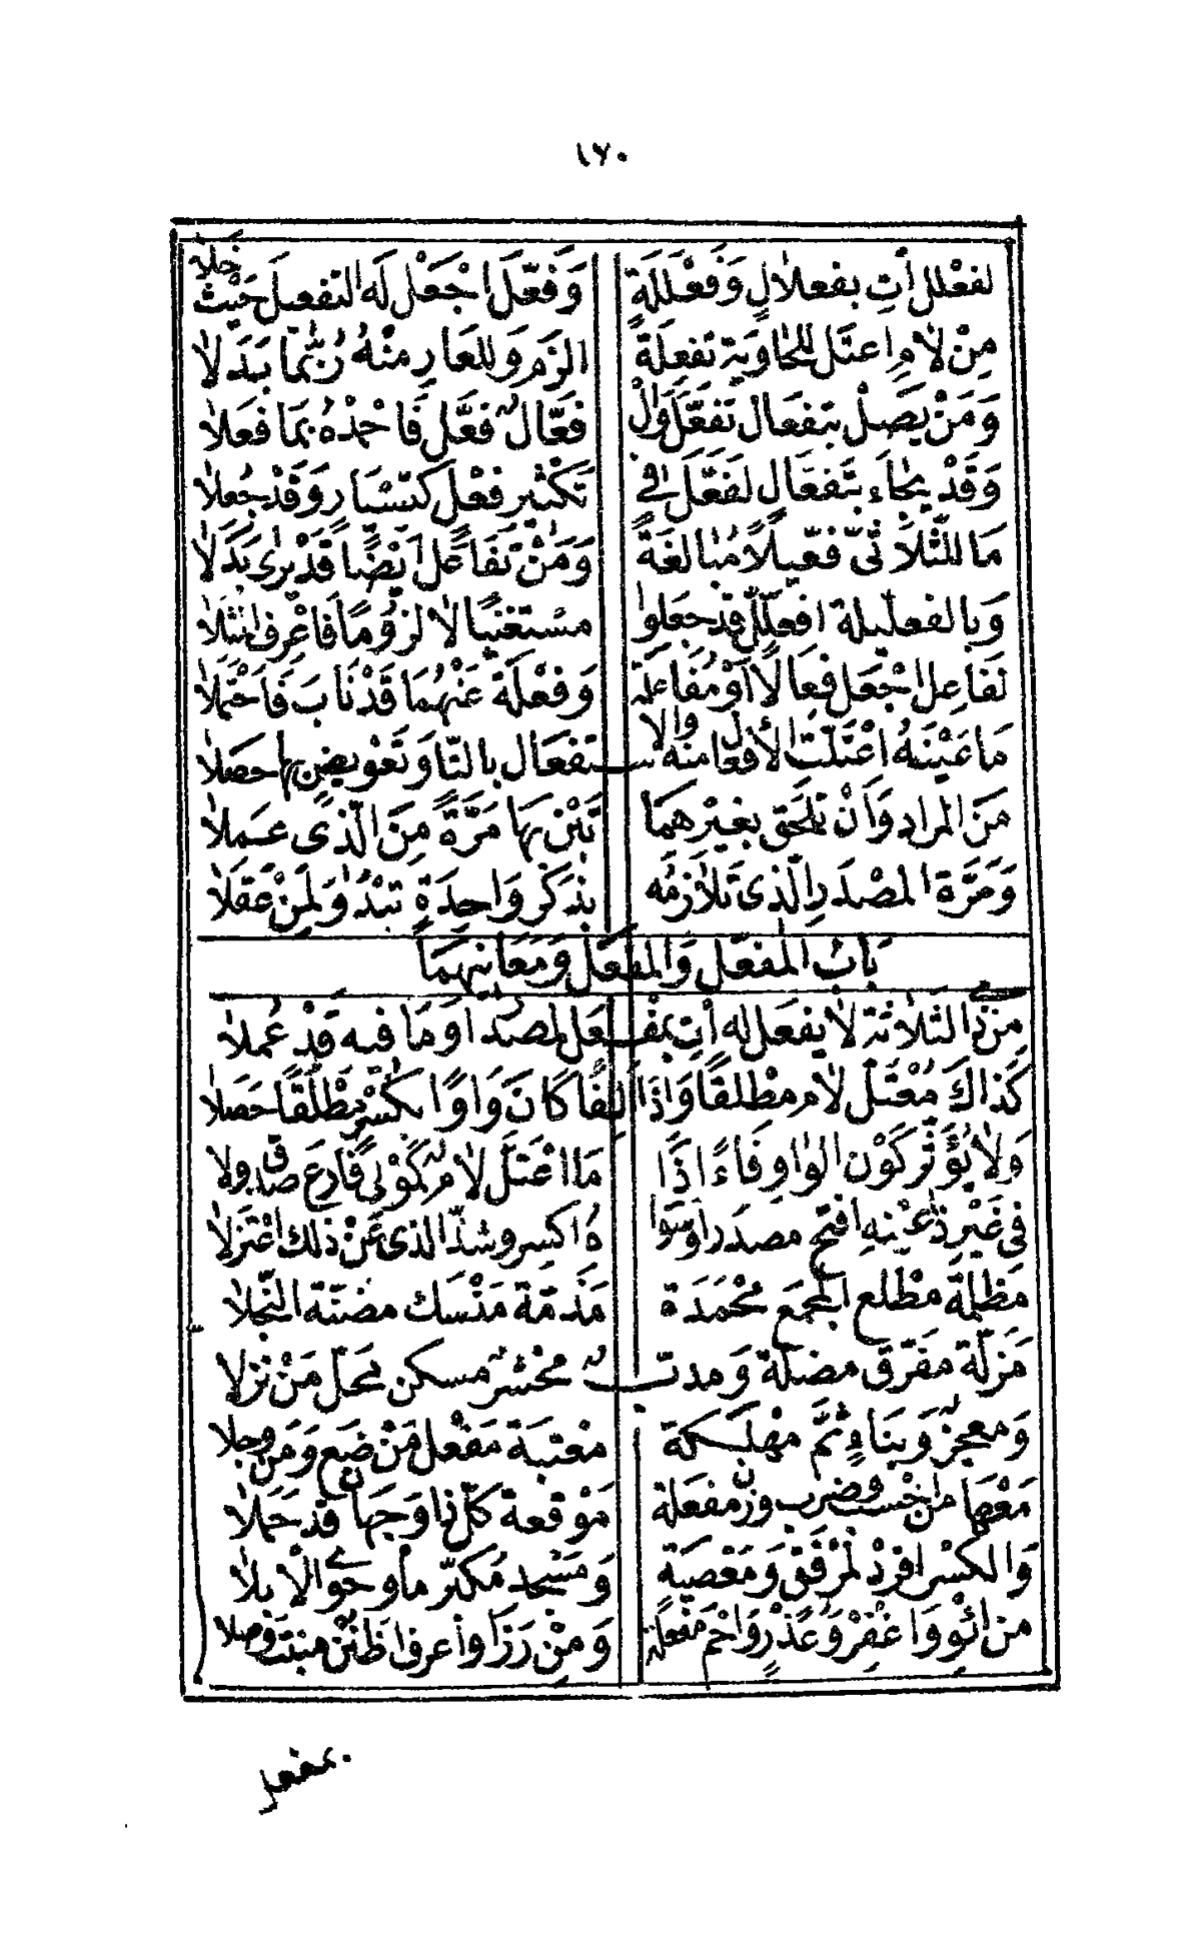 ١٧٠
لفعلل أتِ بفعلالٍ وَفَعْلَلَةٍ وَفَعَّلَ اجْعَلْ لَه التفعيل حَيْثُ خَلا
مِنْ لَامٍ اعتَلَّ للحاويه تفعلَةً الزم وَللعَارِ مِنْهُ رُبَّمَا بَدَلَا
وَمَنْ يَصِلْ بتفعال تَفَعَّلَ وَالْ فعَّال فَعَّل فَاحْمِدْهُ بمَا فَعَلَا
وَقَدْ يُجَاءَ بتَفعَالٍ لفَعَّلَ فِي تَكْثير فعْل كتَسْيَارٍ وَقَدْ جُعِلَا
مَا للثّلَاثىّ فعّيلًا مُبَالغَةً وَمِنْ تفَاعَل أيْضًا قَدْ يرى بَدَلَا
وَبالفعلّيلة افعلَلَّ قد جعلوا مسْتَغنيًا لا لزُومًا فَاعْرِف المثلَا
لفَاعِل اجْعَل فِعَالًا أوْ مُفَاعَلة وَفعْلَة عَنْهُمَا قَدْ نَابَ فَاحْتملَا
مَا عَيْنُهُ اعْتَلَّت الأفعال منه والا ستفعَال بالتّا وَتَعْويض بها حصلا
مَنَ المزاد وَأنْ تلحق بغيْرهمَا تبنْ بهَا مَرّةً مِنَ الّذى عملا
وَمَرَّة المصْدَرِ الّذى تلَازمُه بذكر وَاحِدَةٍ تبْدُو لمَنْ عَقَلَا
بَابُ المَفعَل وَالمفعِل وَمَعَانيهمَا
مِن ذى الثَلَاثة لَا يفعَل له أت بمفْعَل لمصدرٍ أو مَا فيه قَدْ عُملا
كَذاكَ مُعْتلّ لَام مطْلقًا وَاذا الفا كَانَ وَاوًا بكسْر مطْلقًا حَصَلا
وَلا يُؤثّر كَوْن الواو فَاءً اذَا مَا اعْتَلَّ لَام كمَوْلى فارعَ صدق ولا
فى غَيْر ذا عيْنهِ افتح مصدَرا وسوا هُ اكسر وشذّ الذى عَنْ ذلك اعْتَزلا
مَظلمة مطْلع المجمع محْمَدَة مَذمّة مَنْسك مضنّة البُخلا
مَزلّة مفرّق مضلّة وَمدبّ محْشر مسكن محلّ مَنْ نزلا
وَمعجز وَبتَاءٍ ثمّ مهلكة معْتبة مفْعل مَنْ ضَع وَمَن وجلا
مَعْها من احْسب وضرب وزن مفعَلة مَوْقعة كلّ ذا وَجهان قد حَمَلا
وَالكسْر افردْ لمرْفق وَمَعْصية وَمَسْجد مُكبّر مأوى حوى الإبلا
من ائوْ وَاغفرْ وعذرْ وَاحْم مَفعلة وَمنْ رَزا واعرف اظنن منبتَ وصلا
بمفعل